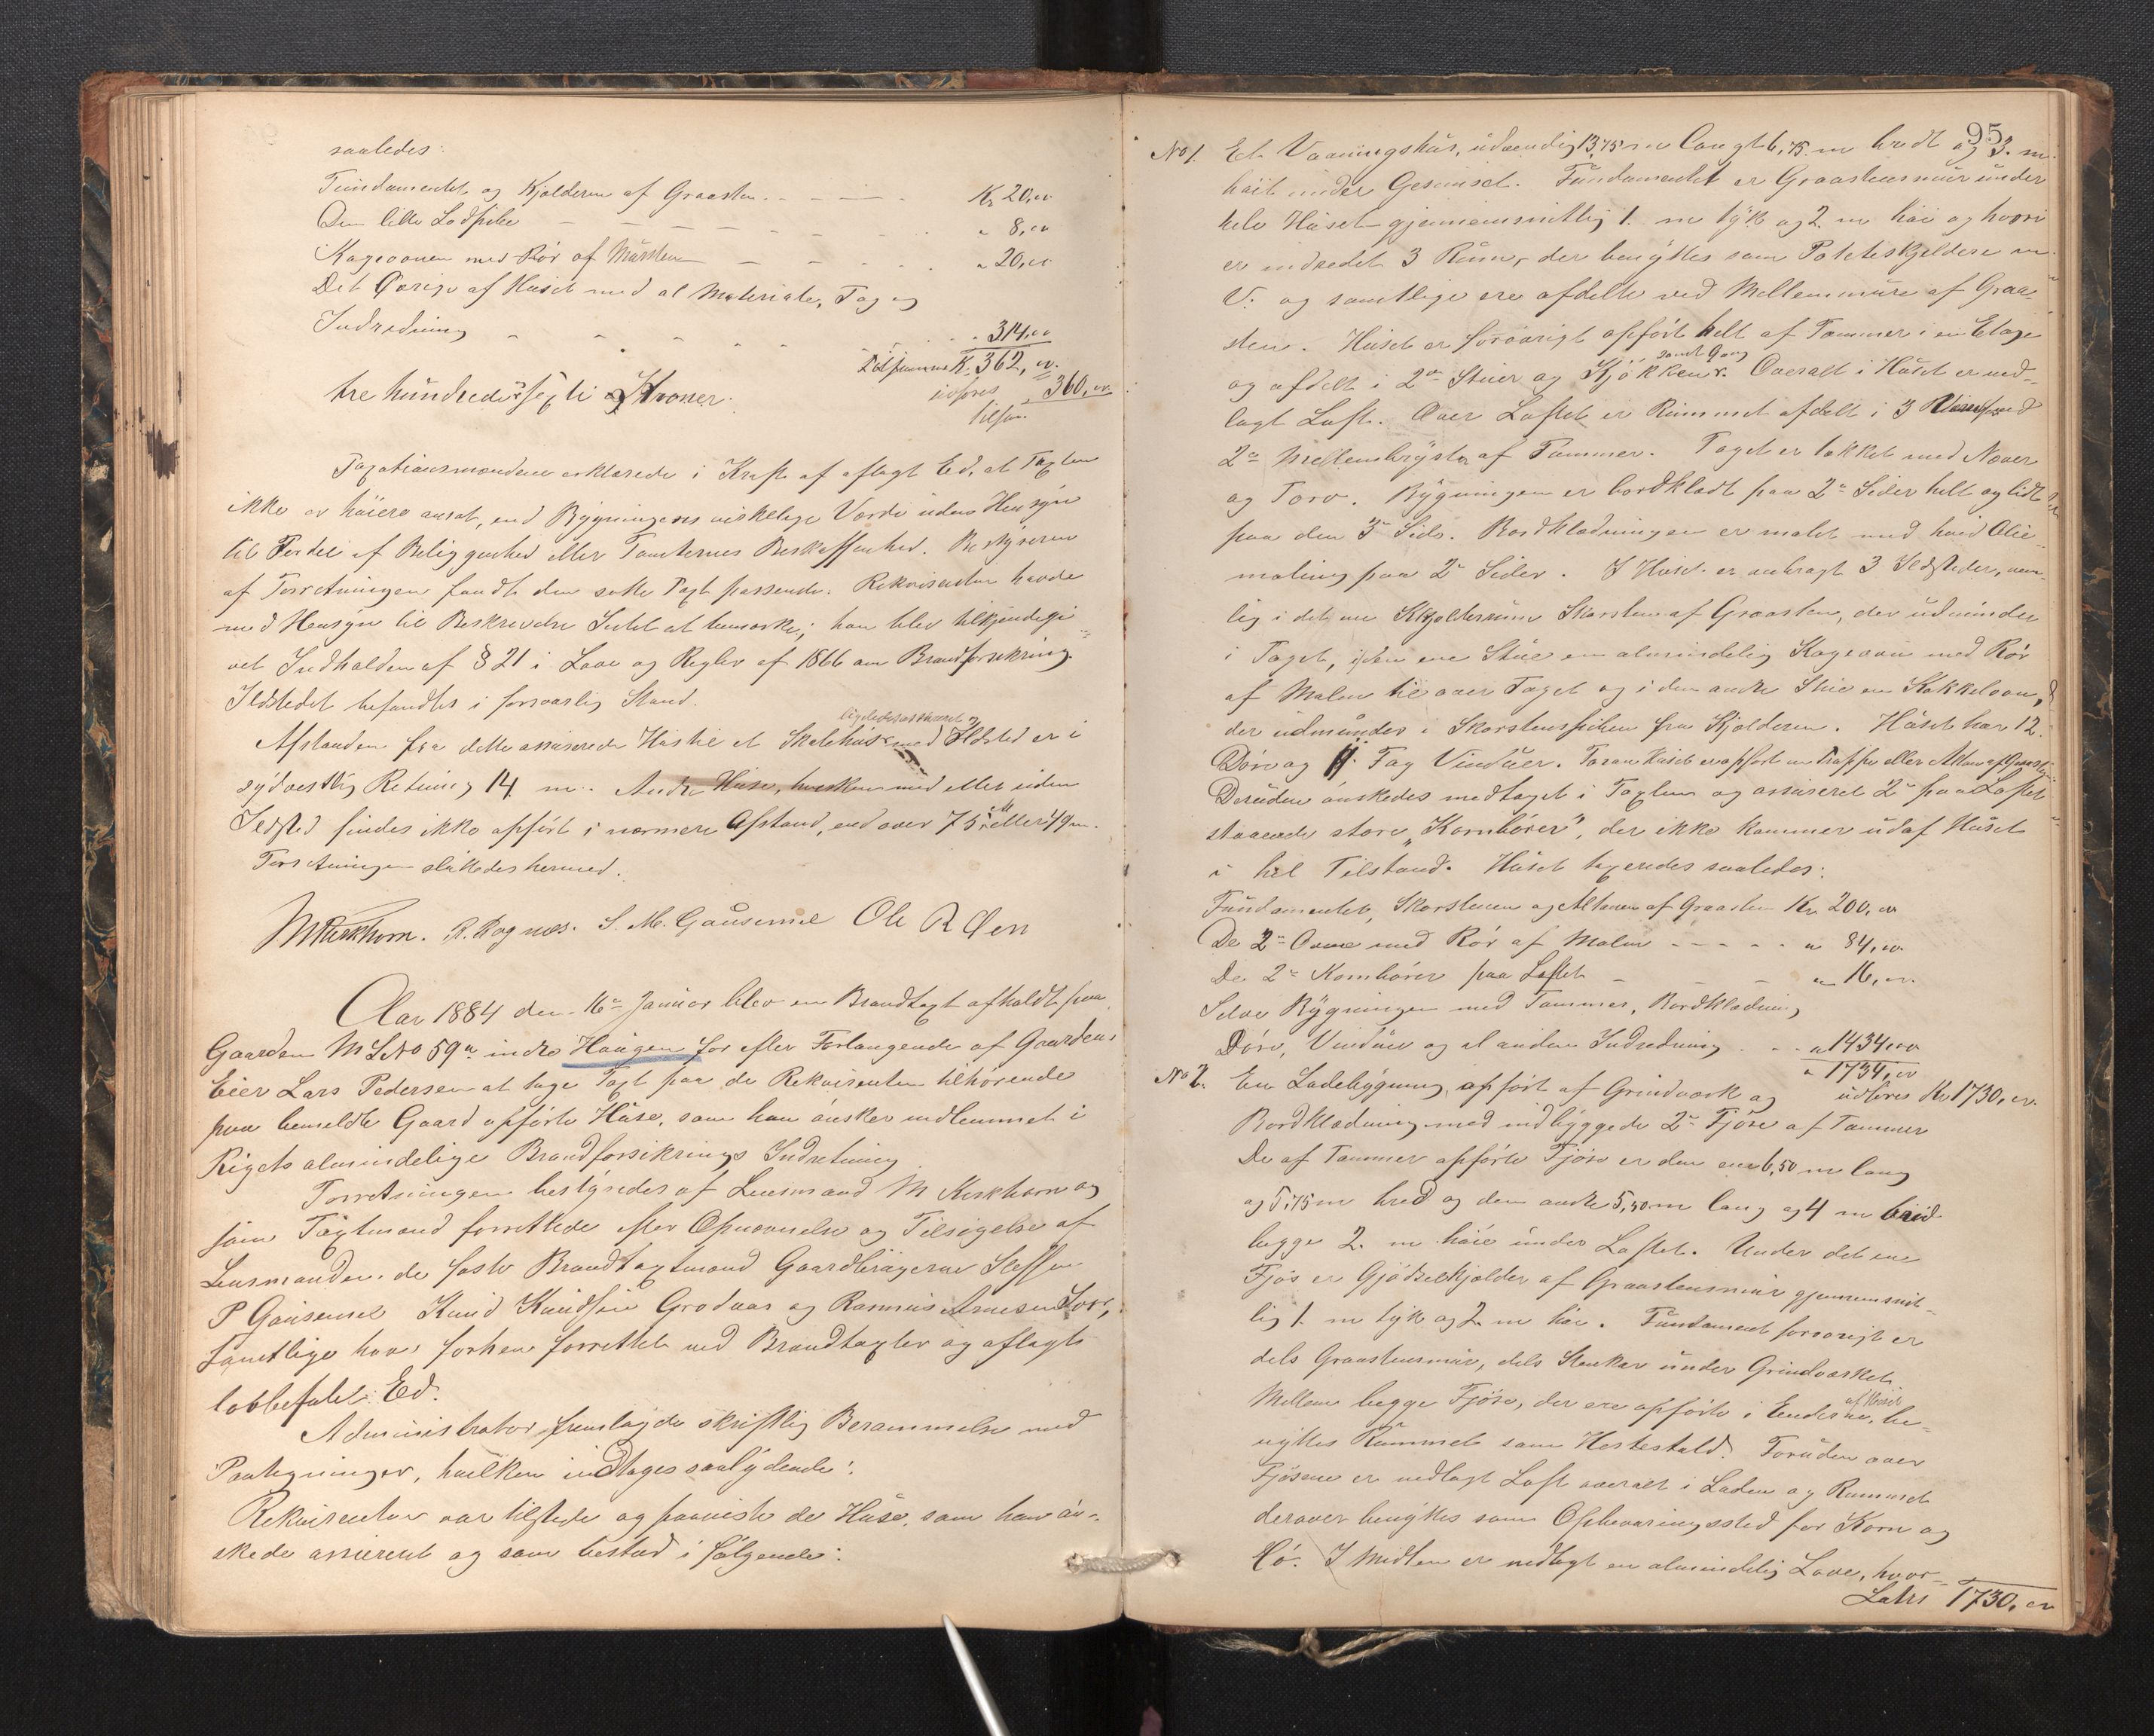 saaledes:
Fundamentet og Kjelderen af Graasten Kr 20,00
Den lille Ladpibe " 8,00
Kageovnen med Rør af Mursten " 20,00
Det Øvrige af Huset med al Materiale, Tag og
Indredning " 314,00
Tilsammen Kr. 362,00.
udføres 360,00
tre hundrede og sexti Kroner.
Taxationsmændene erklærede i Kraft af aflagt Ed, at Taxten
ikke er høiere ansat, end Bygningens virkelige Værdi uden Hensyn
til Fordel af Beliggenhed eller Tomternes Beskaffenhed. Bestyreren
af Forretningen fandt den satte Taxt passende. Rekvirenten havde
med Hensyn til Beskrivelse Intet at bemærke; han blev tilkjendegi-
vet Indholden af § 21 i Lov og Regler af 1866 om Brandforsikring
Ildstedet befandtes i forsvarlig Stand.
Afstanden fra dette assurerede Hus til et ligeledes assureret Skolehus med Ildsted er i
sydvestlig Retning 14 m. Andre Huse, hverken med eller uden
Ildsted findes ikke opført i nærmere Afstand, end over 75 al eller 49 m.
Forretningen sluttedes hermed.
M Kirkhorn. R. Rognes. S. M. Gausemel Ole R Øen
Aar 1884 den 16de Januar blev en Brandtaxt afholdt paa
Gaarden M L No 59a indre Haugen for efter Forlangende af Gaardens
Eier Lars Pedersen at tage Taxt paa de Rekvirenten tilhørende
paa bemeldte Gaard opførte Huse, som han ønsker indlemmet i
Rigets almindelige Brandforsikrings Indretning
Forretningen bestyredes af Lensmand M Kirkhorn og
som Taxtmænd forrettede efter Opnævnelse og Tilsigelse af
Lensmanden de faste Brandtaxtmænd Gaardbrugerne Steffen
P Gausemel Knud Knudsen Grodaas og Rasmus Arnesen
samtlige have forhen forrettet ved Brandtaxter og aflagt
lovbefalet Ed.
Administrator fremlagde skriftlig Berammelse med
Paategninger, hvilken indtages saalydende:
Rekvirenten var tilstede og paaviste de Huse, som han øn-
skede assureret og som bestod i følgende:
95
No 1. Et Vaaningshus, udvendig 13,75 m langt 6,75 m bredt og 3. m
høit under Gesimset. Fundamentet er Graastensmur under
hele Huset gjennemsnitlig 1. m tyk og 2. m høi og hvori
er indredet 3 Rum, der benyttes som Poteteskjeldere m.
V. og samtlige ere afdelte ved Mellemmure af Graa-
sten. Huset er forøvrigt opført helt af Tømmer i en Etage
og afdelt i 2de Stuer og Kjøkken samt Gang. Overalt i Huset er ned-
lagt Loft. Over Loftet er Rummet afdelt i 3 Værelser ved
2de Mellembryster af Tømmer. Taget er tækket med Næver
og Torv. Bygningen er bordklædt paa 2de Sider helt og lidt
paa den 3de Side. Bordklædningen er malet med hvid Olie-
maling paa 2de Sider. I Huset er anbragt 3 Ildsteder, nem-
lig i det ene Kjelderrum Skorsten af Graasten, der udmunder
i Taget, i den ene Stue en almindelig Kageovn med Rør
af Malm til over Taget og i den andre Stue en Kakkelovn,
der udmundes i Skorstenspiben fra Kjelderen. Huset har 12
Døre og 11 Fag Vinduer. Foran Huset er opført en Trappe eller Altan af Graasten
Desuden ønskedes medtaget i Taxten og assureret 2de paa Loftet
staaende store "Kornbører", der ikke kommer ud af Huset
i hel Tilstand. Huset taxeredes saaledes:
Fundamentet, Skorstenen og Altanen af Graasten Kr. 200,00
De 2de Ovne med Rør af Malm " 84,00.
De 2de Kornbører paa Loftet " 16,00.
Selve Bygningen med Tømmer, Bordklædning
Døre, Vinduer og al anden Indredning " 1434,00
" 1734,00
udføres Kr 1730,00.
No 2. En Ladebygning, opført af Grindværk og
Bordklædning med indbyggede 2de Fjøse af Tømmer
De af Tømmer opførte Fjøse er den ene 6,50 m lang
og 5,75 m bred og den andre 5,50 m lang og 4 m breid
begge 2. m høie under Loftet. Under det ene
Fjøs er Gjødselkjelder af Graastensmur gjennemsnit-
lig 1. m tyk og 2 m høi. Fundament forøvrigt er
dels Graastensmur, dels Stenker under Grindværket.
Mellem begge Fjøse, der ere opførte i Enderne af Huset, be-
nyttes Rummet som Hestestald. Foruden over
Fjøsene er nedlagt Loft overalt i Laden og Rummet
derover benyttes som Opbevaringssted for Korn og
Hø. I Midten er nedlagt en almindelig Laave, hvor-
Latus 1730,00